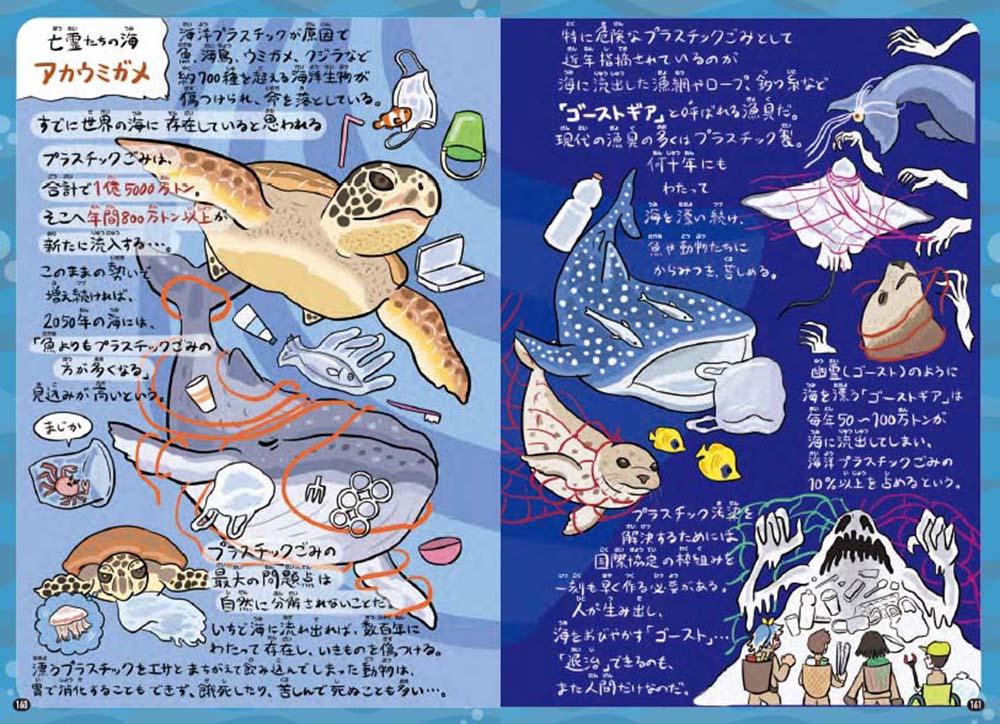 亡霊たちの海
アカウミガメ
海洋プラスチックが原因で
魚、海鳥、ウミガメ、クジラなど
約700種を超える海洋生物が
傷つけられ、命を落としている。
すでに世界の海に存在していると思われる
プラスチックごみは、
合計で1億5000万トン。
そこへ年間800万トン以上が
新たに流入する…。
このままの勢いで
増え続ければ、
2050年の海には、
「魚よりもプラスチックごみの
方が多くなる」
見込みが高いという。
まじか
プラスチックごみの
最大の問題点は
自然に分解されないことだ。
いちど海に流れ出れば、数百年に
わたって存在し、いきものを傷つける。
漂うプラスチックをエサとまちがえて飲み込んでしまった動物は、
胃で消化することもできず、餓死したり、苦しんで死ぬことも多い…。
160
特に危険なプラスチックごみとして
近年指摘されているのが
海に流出した漁網やロープ、釣り糸など
「ゴーストギア」と呼ばれる漁具だ。
現代の漁具の多くはプラスチック製。
何十年にも
わたって
海を漂い続け、
魚や動物たちに
からみつき、苦しめる。
幽霊(ゴースト)のように
海を漂う「ゴーストギア」は
毎年50〜100万トンが
海に流出してしまい、
海洋プラスチックごみの
10%以上を占めるという。
プラスチック汚染を
解決するためには
国際協定の枠組みを
一刻も早く作る必要がある。
人が生み出し、
海をおびやかす「ゴースト」…
「退治」できるのも、
また人間だけなのだ。
161